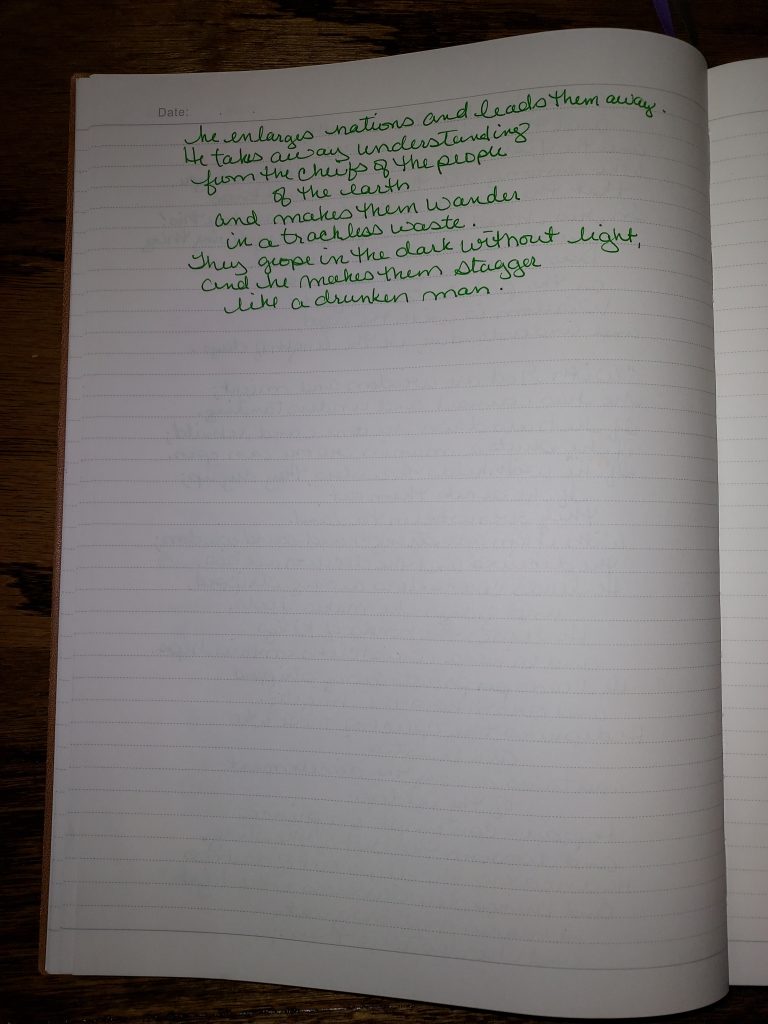 Date:
he enlarges nations and leads them away.
He takes away understanding
from the cheifs of the people
of the earth
and makes them wander
in a trackless waste.
They grope in the dark without light,
and he makes them stagger
like a drunken man.